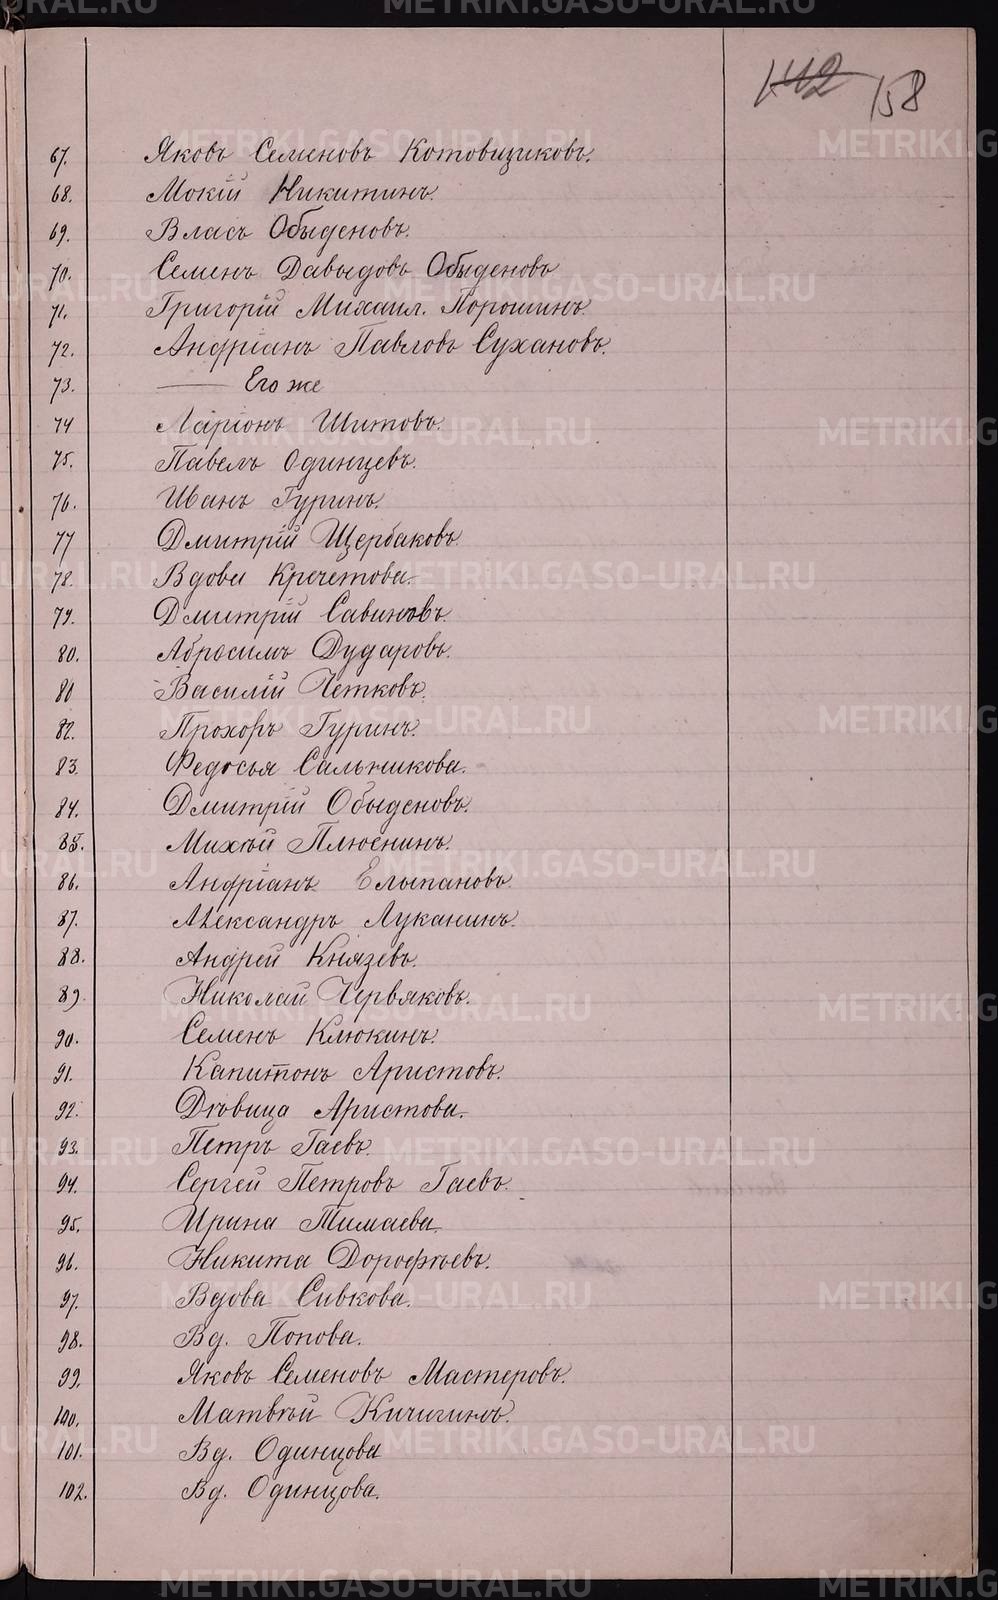 142 158
67. Яковъ Семеновъ Котовщиковъ.
68. Мокій Никитинъ.
69. Власъ Обыденовъ.
70. Семенъ Давыдовъ Обыденовъ
71. Григорій Михаил. Порошинъ.
72. Андріанъ Павловъ Сухановъ.
73. —— Его же
74 Ларіонъ Шитовъ.
75. Павелъ Одинцевъ.
76. Иванъ Гуринъ.
77 Дмитрій Щербаковъ.
78. Вдова Кречетова.
79. Дмитрій Савиновъ.
80. Абросимъ Дударовъ.
81 Василій Четковъ.
82. Прохоръ Гуринъ.
83. Федосья Сальникова.
84. Дмитрій Обыденовъ.
85. Михѣй Плюснинъ.
86. Андріанъ Елыпановъ.
87. Александръ Луканинъ.
88. Андрей Князевъ.
89. Николай Червяковъ.
90. Семенъ Клюкинъ.
91. Капитонъ Аристовъ.
92. Дѣвица Аристова.
93. Петръ Гаевъ.
94. Сергей Петровъ Гаевъ.
95. Ирина Тимаева.
96. Никита Дорофѣевъ.
97. Вдова Сивкова.
98. Вд. Попова.
99. Яковъ Семеновъ Мастеровъ.
100. Матвѣй Кичигинъ.
101. Вд. Одинцова
102. Вд. Одинцова.
METRIKI.GASO-URAL.RU